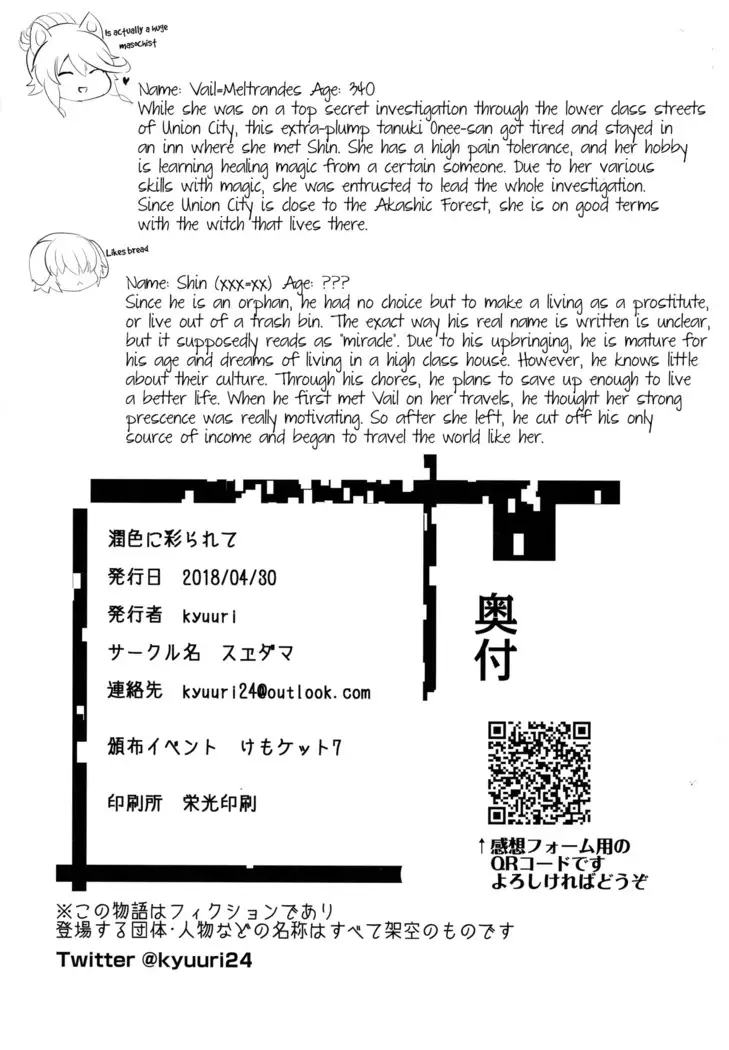 Is actually a huge
masochist
Name: Vail=Meltrandes Age: 340
While she was on a top secret investigation through the lower class streets
of Union City, this extra-plump tanuki Onee-san got tired and stayed in
an inn where she met Shin. She has a high pain tolerance, and her hobby
is learning healing magic from a certain someone. Due to her various
skills with magic, she was entrusted to lead the whole investigation.
Since Union City is close to the Akashic Forest, she is on good terms
with the witch that lives there.
Likes bread
Name: Shin (xxx=xx) Age: ???
Since he is an orphan, he had no choice but to make a living as a prostitute,
or live out of a trash bin. The exact way his real name is written is unclear,
but it supposedly reads as "miracle". Due to his upbringing, he is mature for
his age and dreams of living in a high class house. However, he knows little
about their culture. Through his chores, he plans to save up enough to live
a better life. When he first met Vail on her travels, he thought her strong
prescence was really motivating. So after she left, he cut off his only
source of income and began to travel the world like her.
潤色に彩られて
発行日 2018/04/30
発行者 kyuuri
サークル名 スヱダマ
連絡先 kyuuri24@outlook.com
頒布イベント けもケット7
印刷所 栄光印刷
奥付
↑感想フォーム用の
QRコードです
よろしければどうぞ
※この物語はフィクションであり
登場する団体・人物などの名称はすべて架空のものです
Twitter @kyuuri24